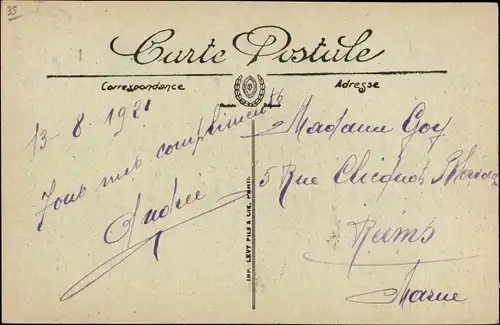 35
Carte Postale
Correspondance
Adresse
13-8-1921
Tous mes compliments
Andrée
IMP. LEVY FILS & CIE, PARIS
Madame Goy
5 Rue Clicquot
Reims
Marne